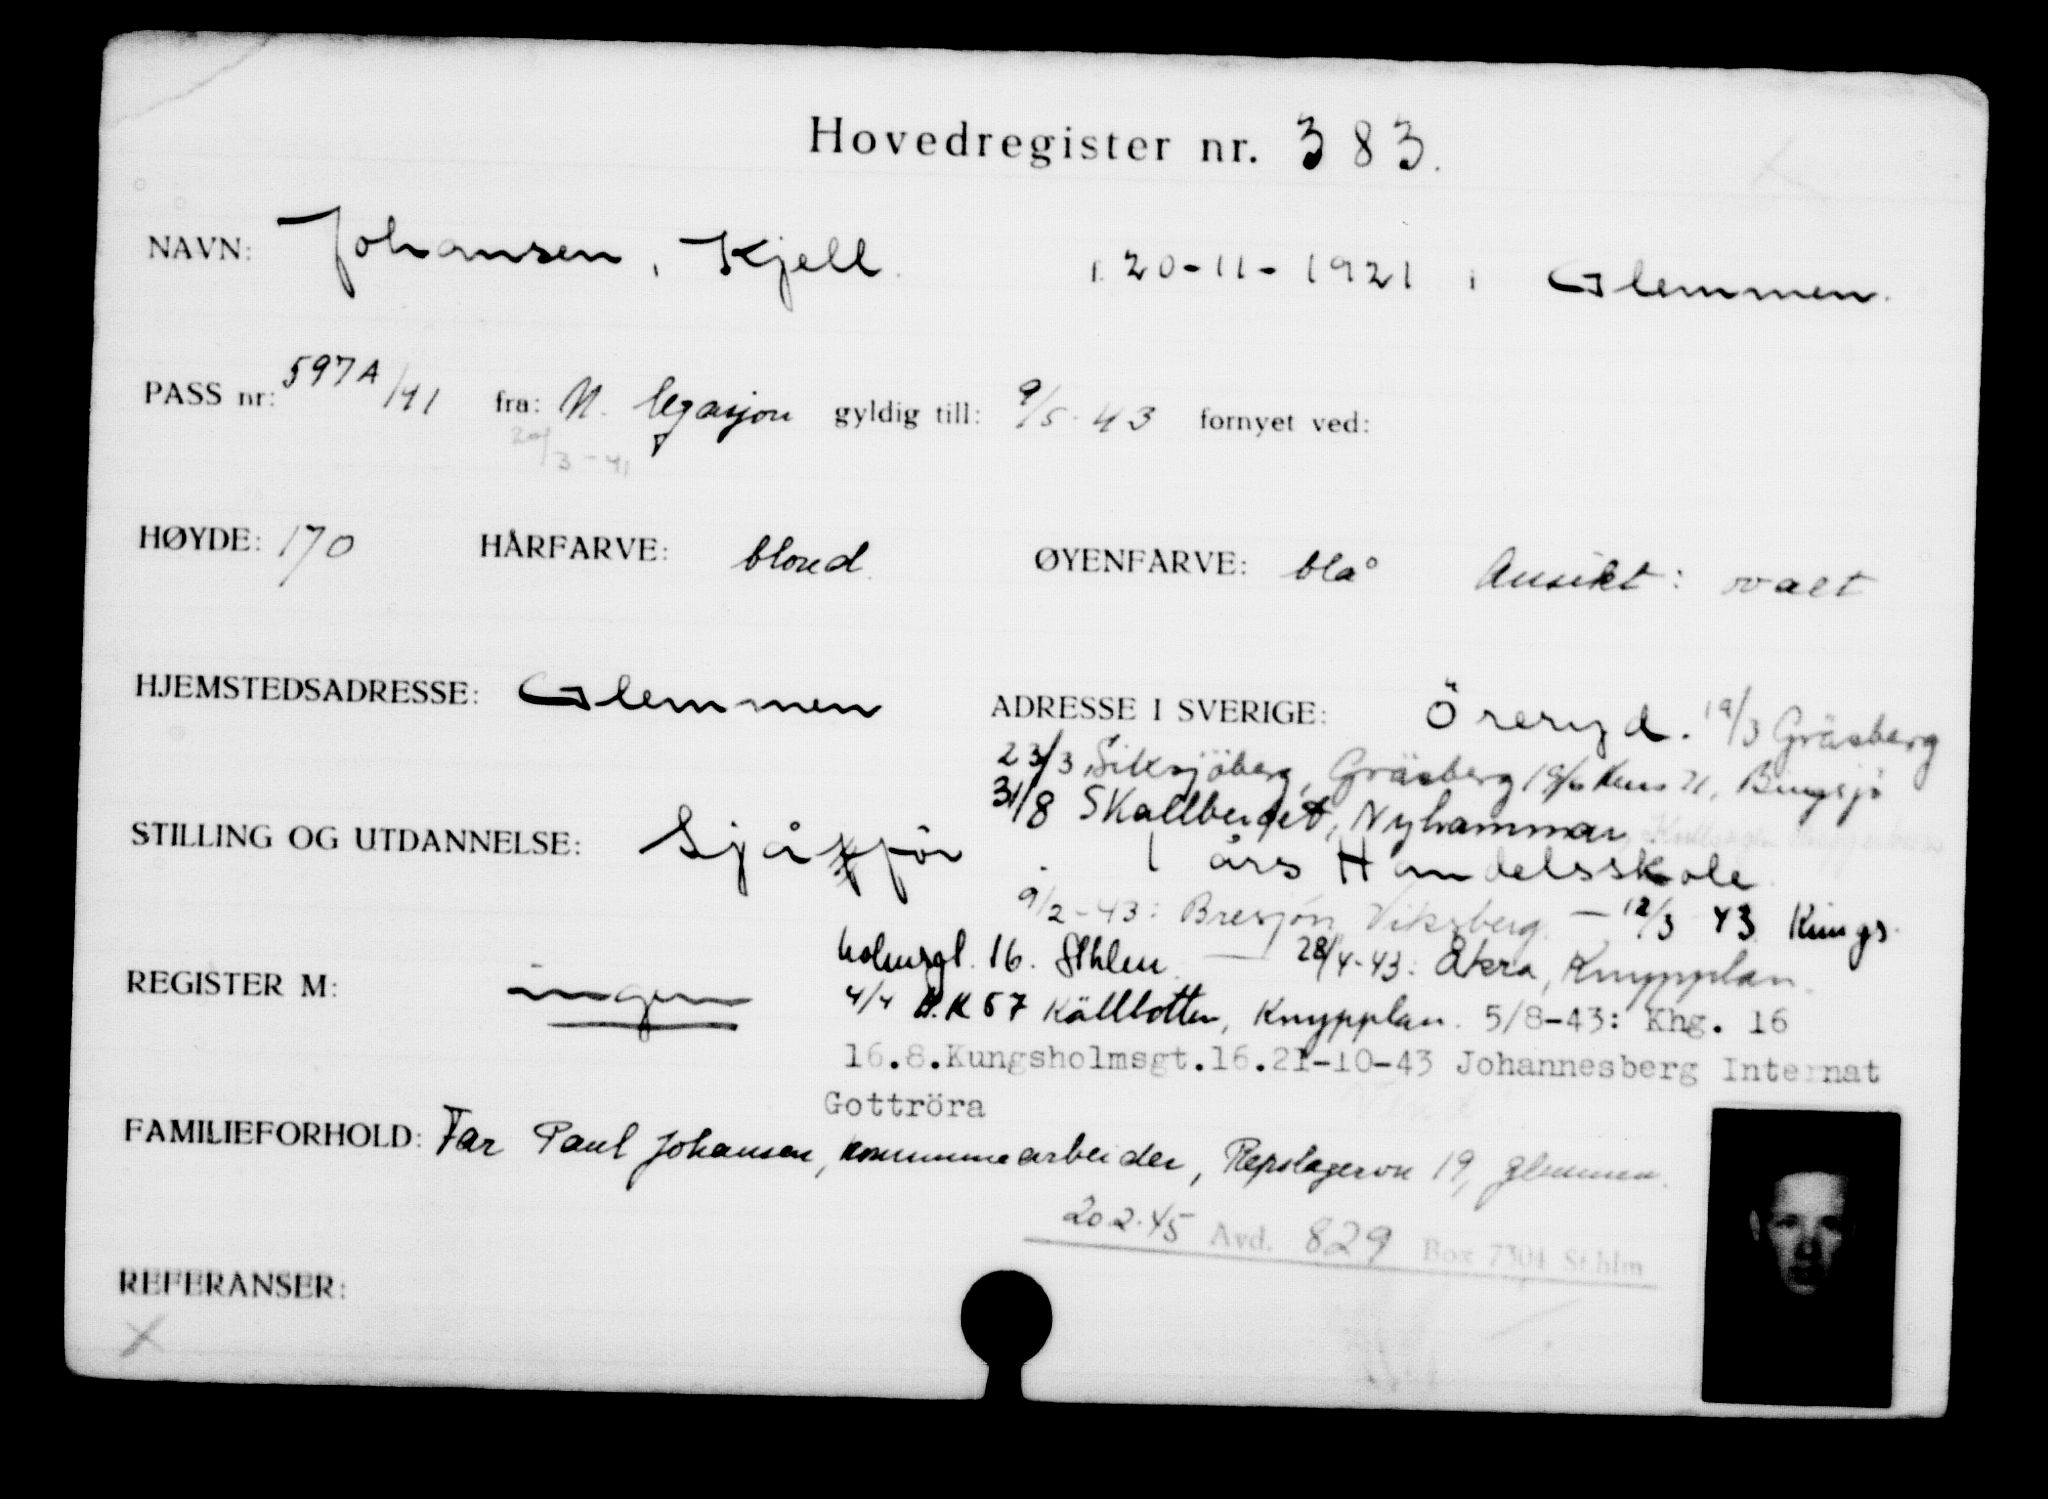 Hovedregister nr. 383.
NAVN: Johansen, Kjell. f. 20-11-1921 i Glemmen.
PASS nr: 597A/41 fra: N. legasjon gyldig till: 9/5-43 fornyet ved:
20/3-41
HØYDE: 170 HÅRFARVE: blond. ØYENFARVE: blå Ansikt: ovalt
HJEMSTEDSADRESSE: Glemmen ADRESSE I SVERIGE: Öreryd. 19/3 Gräsberg
23/3 Siksjöberg, Gräsberg 19/6 Kurs 21, Bingsjö
31/8 Skallberget, Nyhammar,
STILLING OG UTDANNELSE: Sjåfför 1 års Handelsskole.
9/2-43: Bresjön, Viksberg. — 12/3 43 Kungs-
holmsgt. 16. Sthlm. — 28/4-43: Åkra, Knypplan.
REGISTER M: ingen
4/4 H.K 57 Källbotten, Knypplan. 5/8-43: Khg. 16
16.8.Kungsholmsgt.16.21-10-43 Johannesberg Internat
Gottröra
FAMILIEFORHOLD: Far Paul Johansen, kommunearbeider, Repslagervn 19, Glemmen.
20.2.45 Avd. 829 Box 7304 Sthlm
REFERANSER:
X